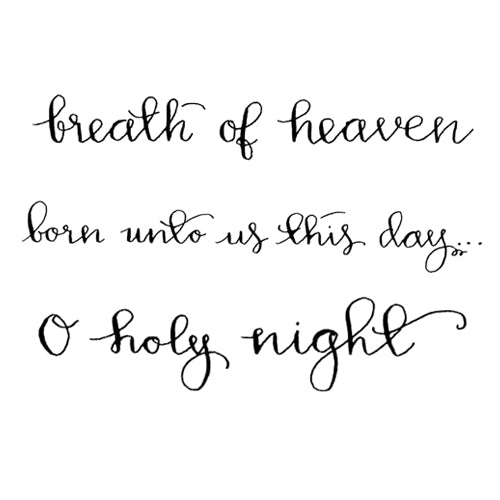 breath of heaven
born unto us this day...
O holy night